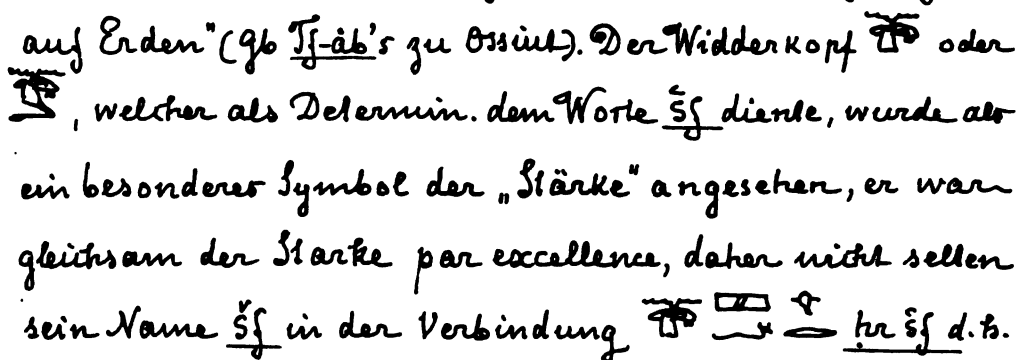 auf Erden" (Gb Tf-áb's zu Ossiut). Der Widderkopf oder
, welcher als Determin. dem Worte šf diente, wurde als
ein besonderes Symbol der „Stärke" angesehen, er war
gleichsam der Starke par excellence, daher nicht selten
sein Name šf in der Verbindung ḥr šf d.h.